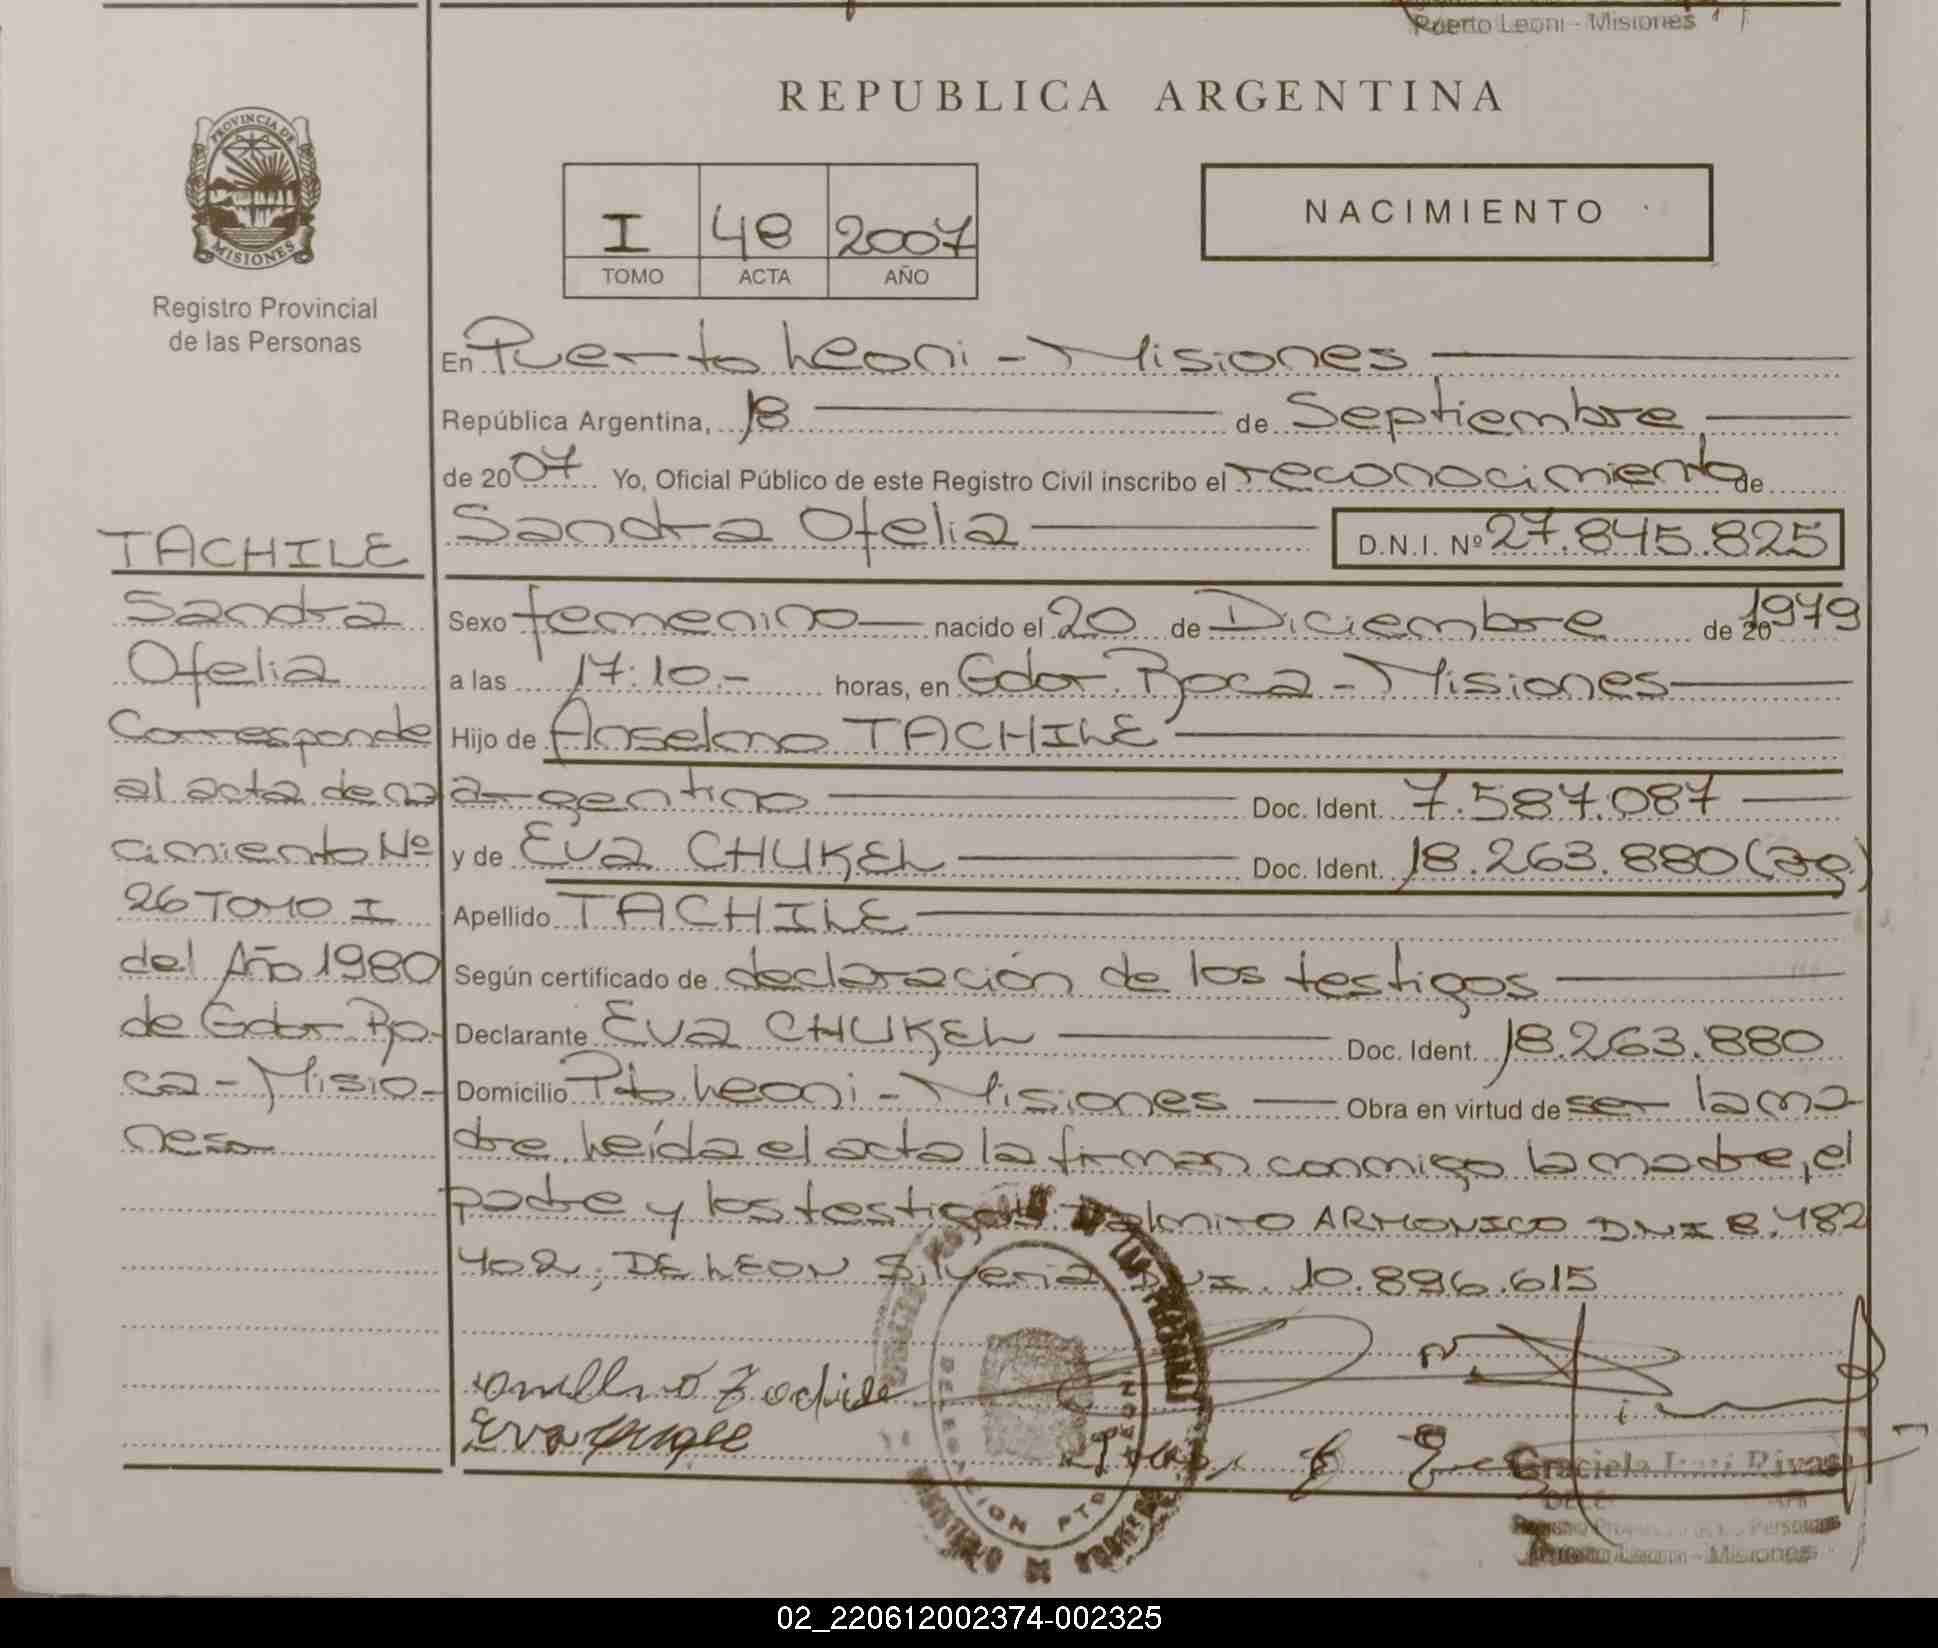 Puerto Leoni - Misiones
REPUBLICA ARGENTINA
PROVINCIA DE
MISIONES
Registro Provincial
de las Personas
I 48 2007
TOMO ACTA AÑO
NACIMIENTO
En Puerto Leoni - Misiones
República Argentina, 18 de Septiembre
de 2007 Yo, Oficial Público de este Registro Civil inscribo el reconocimiento de
Sandra Ofelia D.N.I. Nº 27.845.825
TACHILE
Sandra
Ofelia
Corresponde
al acta de na
cimiento Nº
26 TOMO I
del Año 1980
de Gdor. Ro-
ca - Misio-
nes
Sexo femenino nacido el 20 de Diciembre de 20 1979
a las 17:10.- horas, en Gdor. Roca - Misiones
Hijo de Anselmo TACHILE
argentino Doc. Ident. 7.587.087
y de Eva CHUKEL Doc. Ident. 18.263.880 (arg)
Apellido TACHILE
Según certificado de declaración de los testigos
Declarante Eva CHUKEL Doc. Ident. 18.263.880
Domicilio Pto. Leoni - Misiones Obra en virtud de ser la ma
dre. Leída el acta la firman conmigo la madre, el
padre y los testigos Dalmiro ARMONICO DNI 8.482
402, DE LEON Silveria DNI 10.896.615
Eva
Graciela Rivas
Registro Provincial de las Personas
Puerto Leoni - Misiones
DELEGACION PTO. LEONI
REGISTRO
02_220612002374-002325